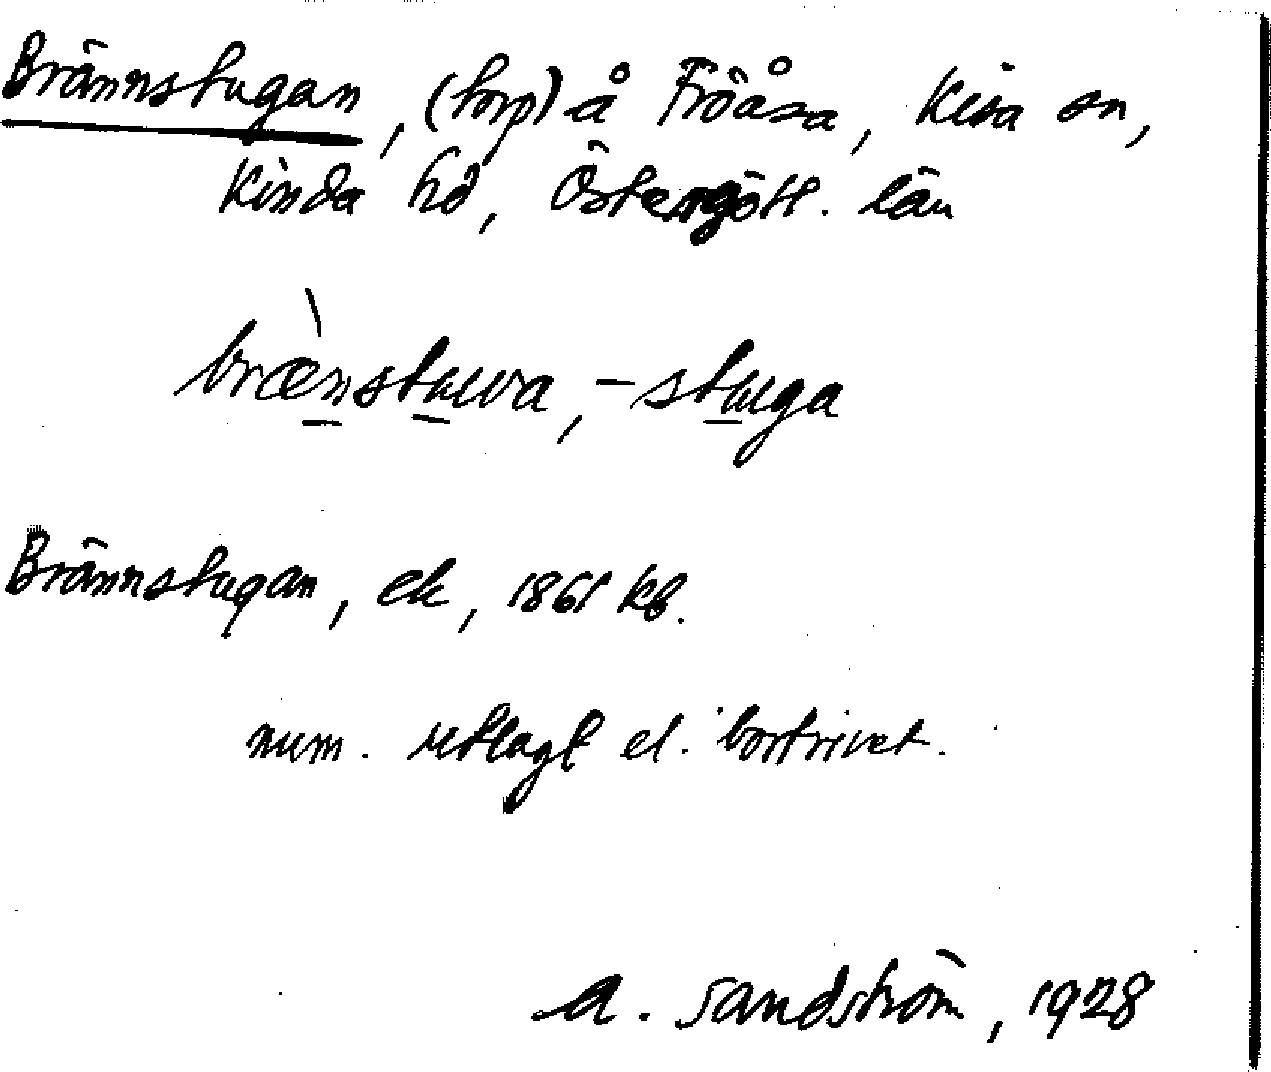 Brännstugan, (torp) å Fröåsa, Kisa sn,
Kinda hd, Östergötl. län
bræ̀nstuwa, -stuga
Brännstugan, ek, 1861 kb.
num. utlagt el. bortrivet.
A. Sandström, 1928